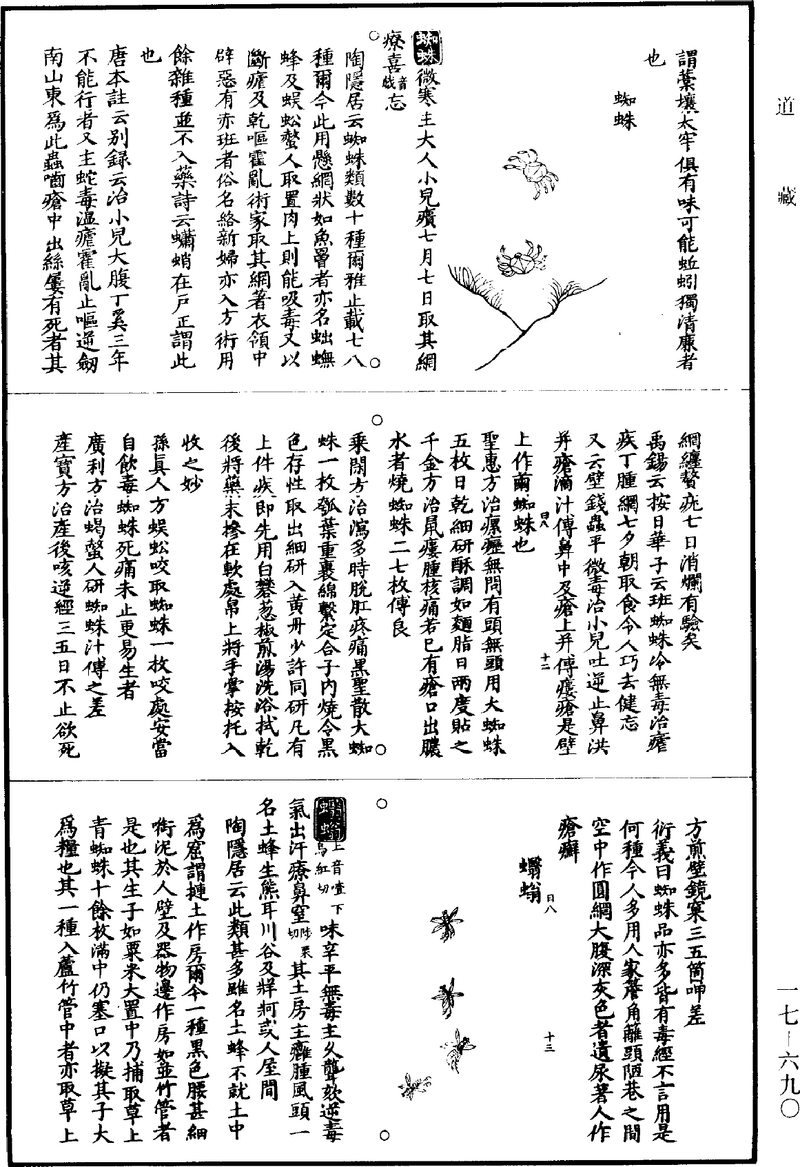 道藏
謂藁壤太牢俱有味可能蚯蚓獨清廉者
也
蜘蛛
蜘蛛微寒主大人小兒㿉七月七日取其網
療喜音戲忘
陶隱居云蜘蛛類數十種爾雅止載七八
種爾今此用懸網狀如魚罾者亦名䖦蟱
蜂及蜈蚣螫人取置肉上則能吸毒又以
斷瘧及乾嘔霍亂術家取其網著衣領中
辟惡有赤斑者俗名絡新婦亦入方術用
餘雜種並不入藥詩云蠨蛸在戶正謂此
也
唐本註云别錄云治小兒大腹丁奚三年
不能行者又主蛇毒温瘧霍亂止嘔逆劒
南山東為此蟲嚙瘡中出絲屢有死者其
網纏贅疣七日消爛有驗矣
禹錫云按日華子云斑蜘蛛冷無毒治瘧
疾丁腫網七夕朝取食令人巧去健忘
又云壁錢蟲平微毒治小兒吐逆止鼻洪
并瘡滴汁傅鼻中及瘡上并傅瘻瘡是壁
上作繭蜘蛛也
聖惠方治瘰癧無問有頭無頭用大蜘蛛
五枚日乾細研酥調如麵脂日兩度貼之
千金方治鼠瘻腫核痛若已有瘡口出膿
水者燒蜘蛛二七枚傅良
乘閑方治瀉多時脫肛疼痛黑聖散大蜘
蛛一枚瓠葉重裹綿繫定合子内燒令黑
色存性取出細研入黄丹少許同研凡有
上件疾即先用白礬葱椒煎湯洗浴拭乾
後將藥末摻在軟處帛上將手掌按托入
收之妙
孫真人方蜈蚣咬取蜘蛛一枚咬處安當
自飲毒蜘蛛死痛未止更易生者
廣利方治蝎螫人研蜘蛛汁傅之差
產寶方治產後咳逆經三五日不止欲死
曰八
十二
方煎壁鏡窠三五箇呷差
衍義曰蜘蛛品亦多皆有毒經不言用是
何種今人多用人家簷角籬頭陋巷之間
空中作圓網大腹深灰色者遺尿著人作
瘡癬
蠮螉
曰八
十三
蠮螉上音噎下烏紅切味辛平無毒主久聾欬逆毒
氣出汗療鼻窒陟栗切其土房主癰腫風頭一
名土蜂生熊耳川谷及牂牁或人屋間
陶隱居云此類甚多雖名土蜂不就土中
為窟謂摙土作房爾今一種黑色腰甚細
銜泥於人壁及器物邊作房如並竹管者
是也其生子如粟米大置中乃捕取草上
青蜘蛛十餘枚滿中仍塞口以擬其子大
為糧也其一種入蘆竹管中者亦取草上
一七-六九〇